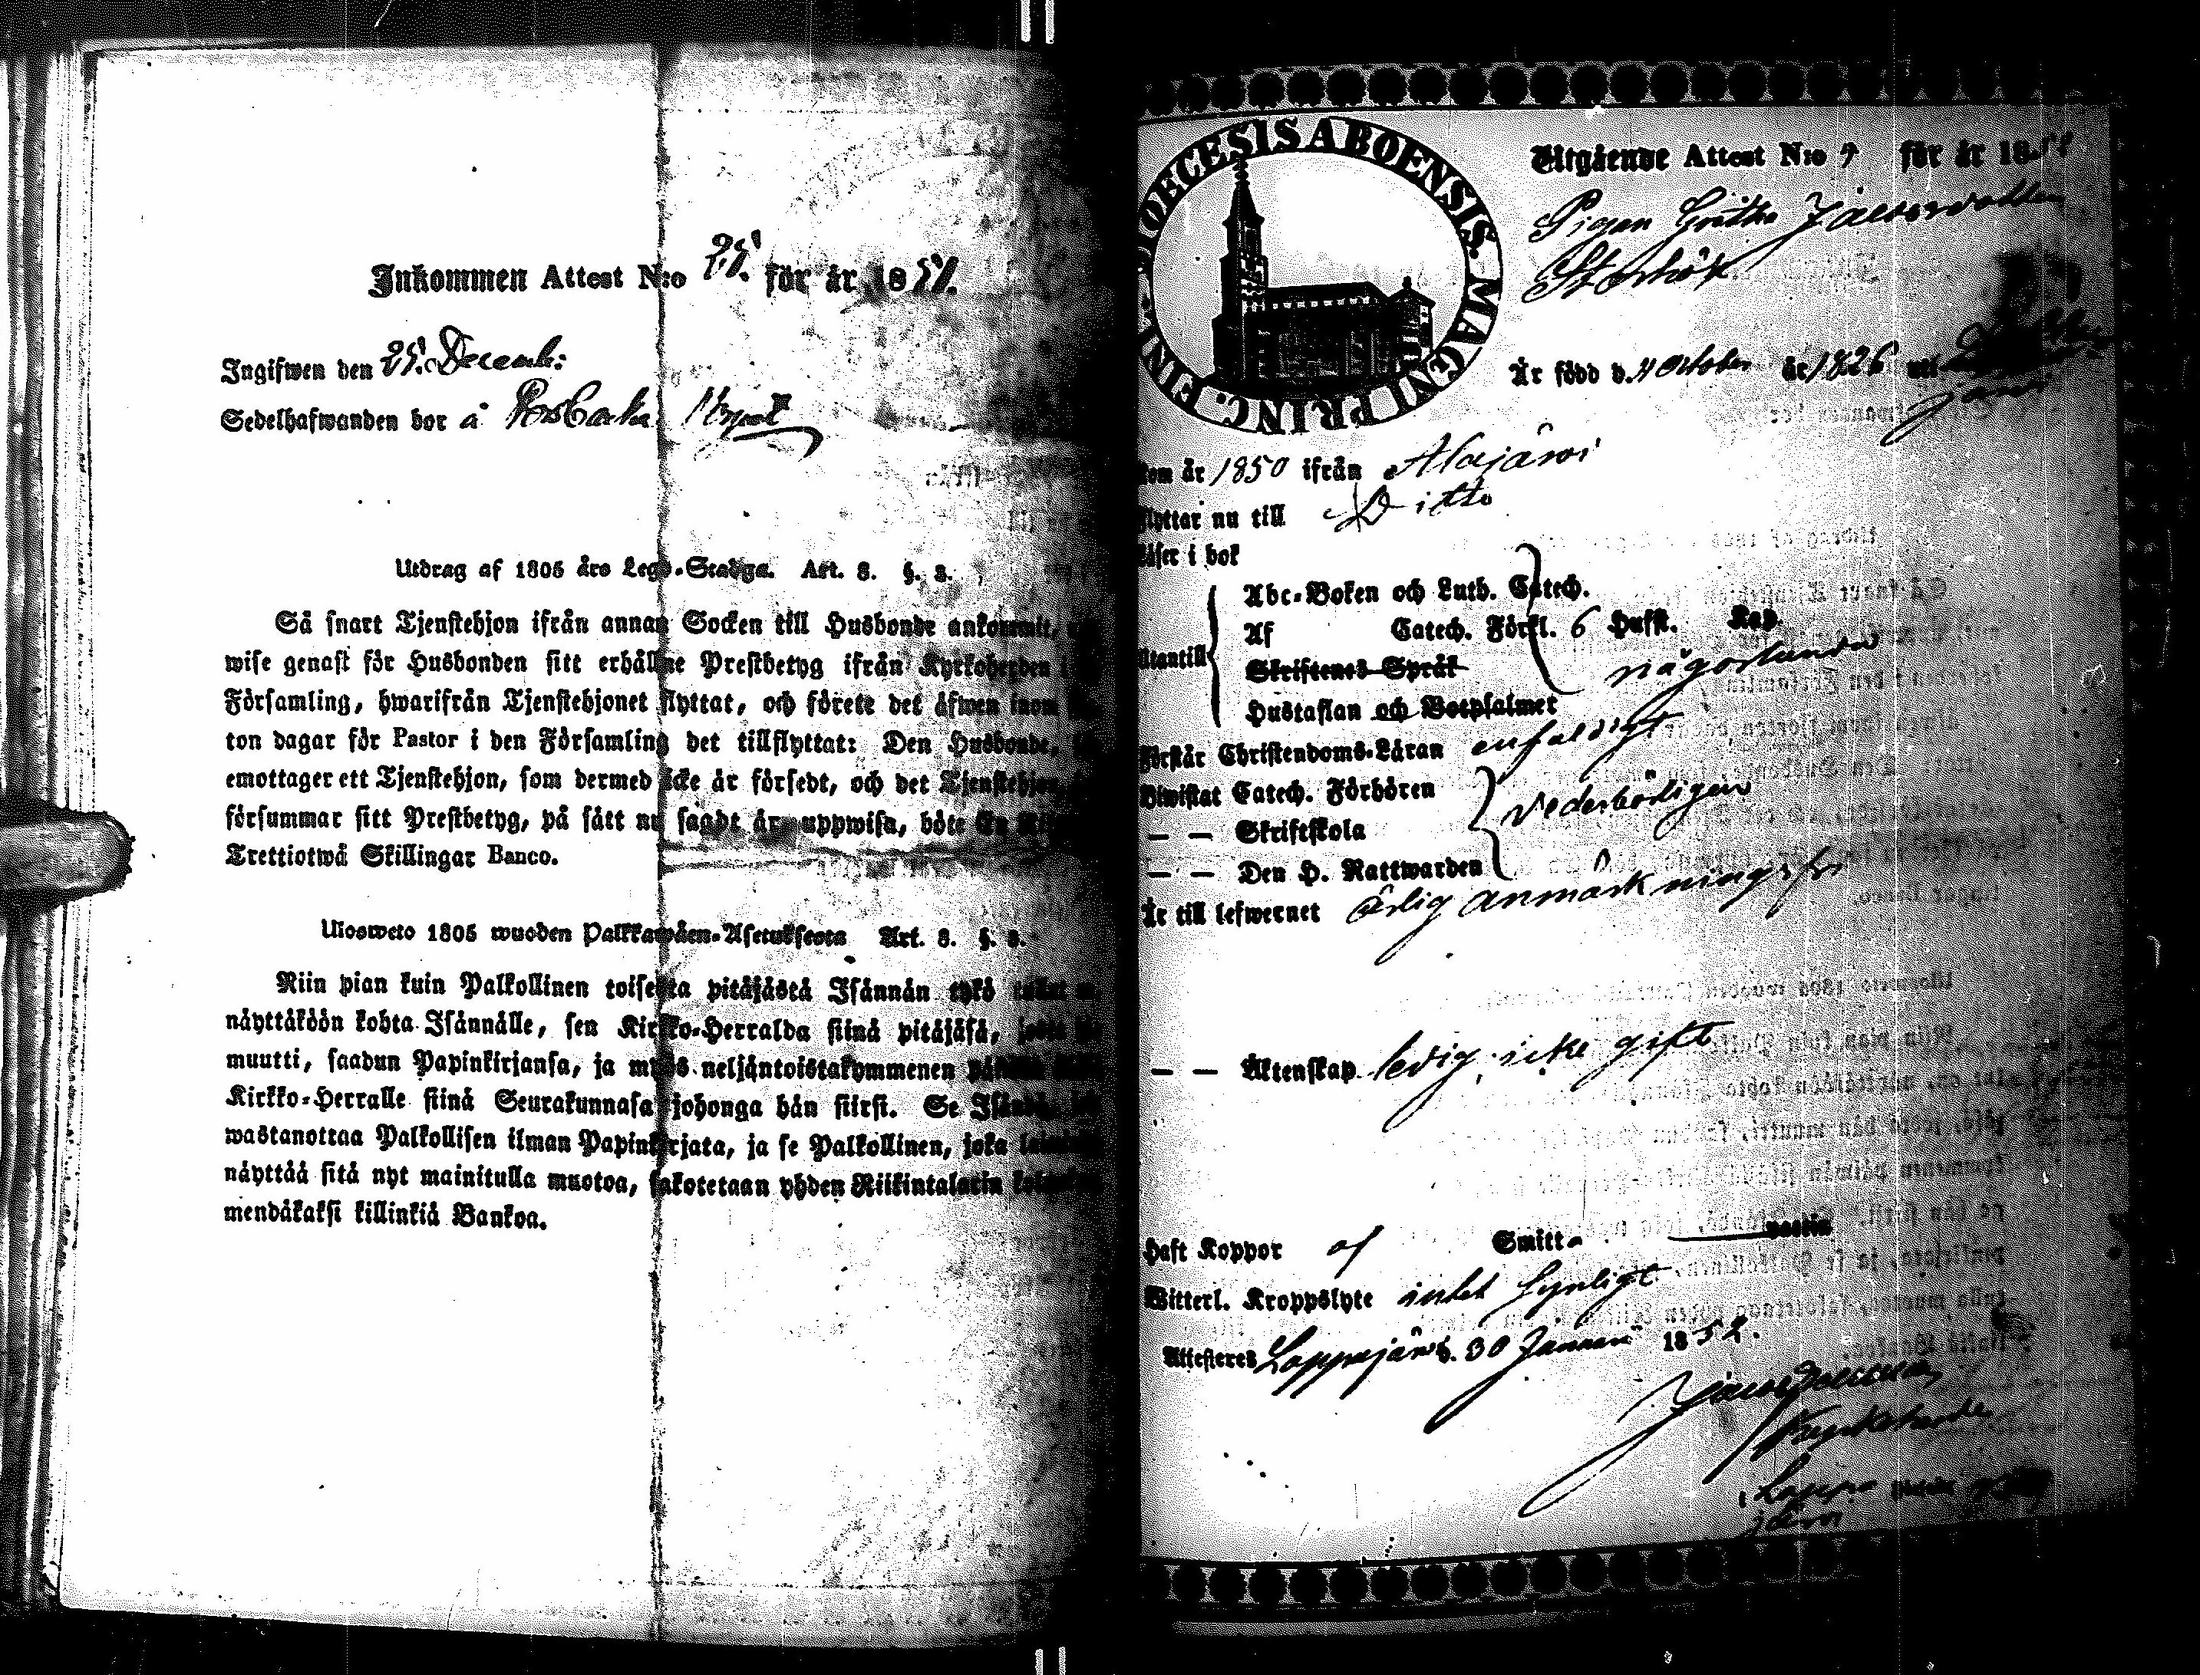 Inkommen Attest N:o 25. för år 1851.
Ingifwen den 25. Decemb:
Sedelhafwanden bor å
Utdrag af 1805 års Lego-Stadga. Art. 8. §. 3.
Så snart Tjenstehjon ifrån annan Socken till Husbonde ankommit,
wise genast för Husbonden sitt erhållne Prestbetyg ifrån Kyrkoherden i
Församling, hwarifrån Tjenstehjonet flyttat, och förete det äfwen inom
ton dagar för Pastor i den Församling det tillflyttat: Den Husbonde,
emottager ett Tjenstehjon, som dermed icke är försedt, och det Tjenstehjon,
försummar sitt Prestbetyg, på sätt nu sagdt är, uppwisa, böte En
Trettiotwå Skillingar Banco.
Ulosweto 1805 wuoden Palkkawäen-Asetuksesta Art. 8. §. 3.
Niin pian kuin Palkollinen toisesta pitäjästä Isännän tykö
näyttäköön kohta Isännälle, sen Kirkko-Herralda siinä pitäjäsä,
muutti, saadun Papinkirjansa, ja myös neljäntoistakymmenen
Kirkko-Herralle siinä Seurakunnasa johonga hän siirsi. Se
wastanottaa Palkollisen ilman Papinkirjata, ja se Palkollinen, joka
näyttää sitä nyt mainitulla muotoa, sakotetaan yhden Riikintalarin
mendäkaksi killinkiä Bankoa.
DIOECESIS ABOENSIS. MAGNI PRINC. FINL.
Utgående Attest N:o 7 för år 18
Pigan Greta
Storhök
Är född d. 4 October år 1826 uti
kom år 1850 ifrån Alajärvi
flyttar nu till Ditto
Läser i bok
Abc-Boken och Luth. Catech.
Af Catech. Förkl. 6 Hufst. Kap.
Utantill Skriftenes Språk någorlunda
Hustaflan och Botpsalmer
Förstår Christendoms-Läran enfaldigt
Biwistat Catech. Förhören
— — Skriftskola vederbörligen
— — Den H. Nattwarden
Är till lefwernet ärlig anmärkningsfri
— — Äktenskap ledig, icke gift
Haft Koppor af Smitta
Witterl. Kroppslyte intet synligt
Attesteras Lappajärvi d. 30 Januari 1852.
Lappo